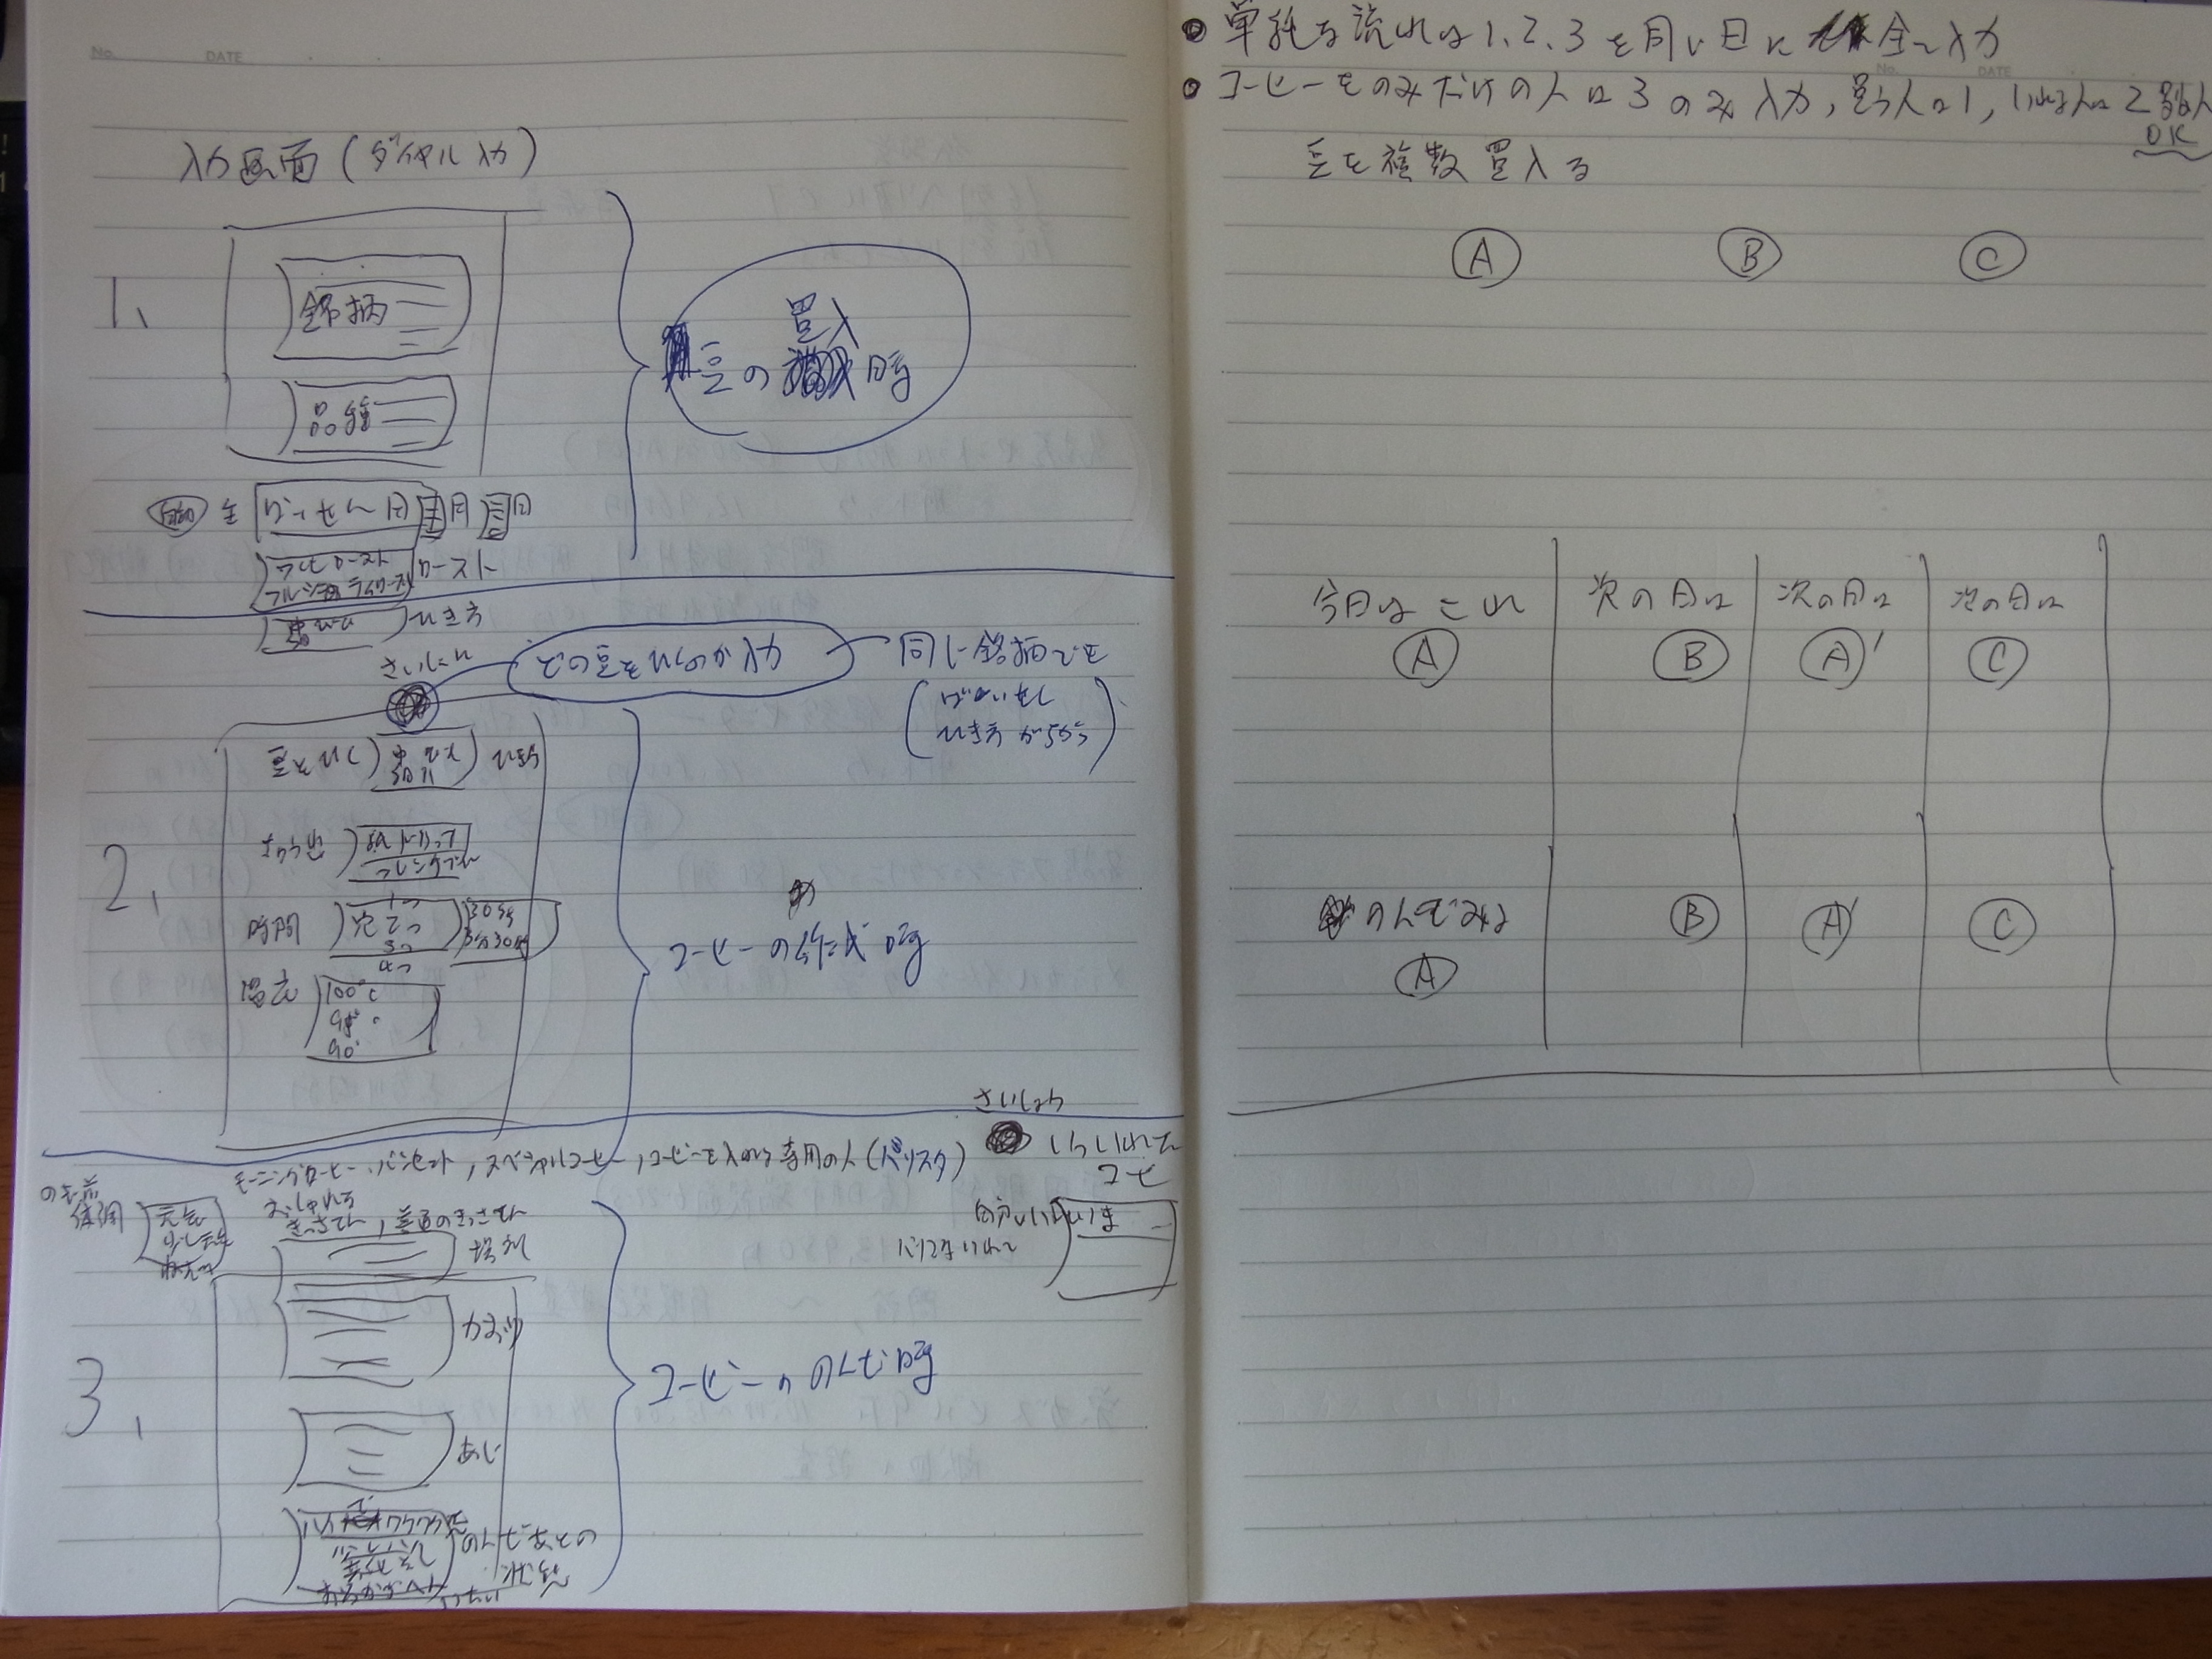 No.
DATE
入力画面(ダイヤル入力)
1、
銘柄
品種
豆の
買入
時
を
ばいせん日
月
日
ロースト
フルシティロースト
ひき方
さいしょに
どの豆をひくのか入力
同じ銘柄でも
ばいせん
ひき方がちがう
2、
豆をひく
中
細
時間
1つ
2つ
3つ
4つ
30秒
3分30秒
温度
100℃
90°
コーヒーの作成時
さいしょう
モーニングコーヒー、パンセット,スペシャルコーヒー,コーヒーを入れる専用の人(バリスタ)
コーヒー
のむ前
体調
元気
おしゃれな
きっさてん,普通のきっさてん
場所
自分でいれた
3、
かおり
あじ
コーヒーののんだ時
のんだあとの
状態
● 単純な流れは1、2、3を同じ日に全て入力
● コーヒーをのみだけの人は3のみ入力,買う人は1,いれる人は2
OK
豆を複数買入る
A B C
今日はこれ
A
次の日は
B
次の日は
A'
次の日は
C
のんでみる
A
B
A'
C